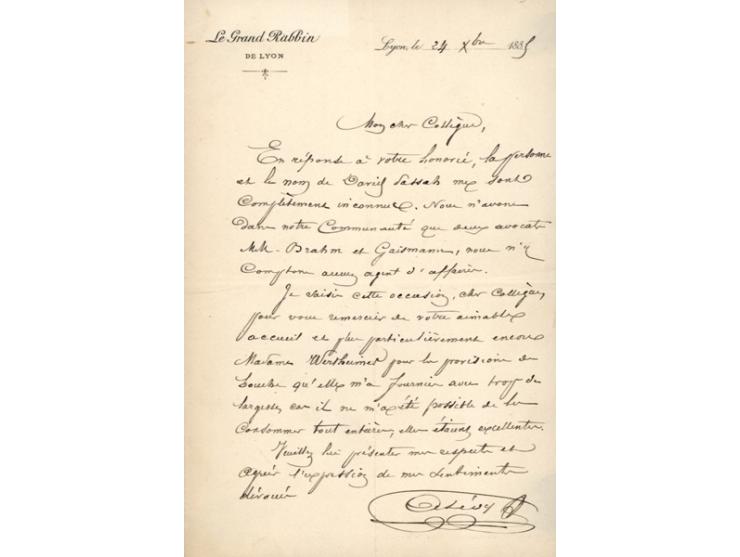 Le Grand Rabbin
DE LYON
Lyon, le 24 Xbre 1885
Mon cher Collègue,
En réponse à votre honorée, la personne
et le nom de David Sassah me sont
Complètement inconnus. Nous n'avons
dans notre Communauté que deux avocats
MM. Brahm et Gaismann, nous n'y
Comptons aucun agent d'affaires.
Je saisis cette occasion, cher Collègue,
pour vous remercier de votre aimable
accueil et plus particulièrement encore
Madame Wertheimer pour les provisions de
bouche qu'elle m'a fournies avec trop de
largesse, car il ne m'a été possible de les
Consommer tout entières, elles étaient excellentes.
Veuillez lui présenter mes respects et
agréer l'expression de mes sentiments
dévoués
Lévy